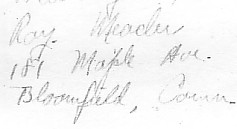 Roy. Meader
181 Maple Ave.
Bloomfield, Conn.